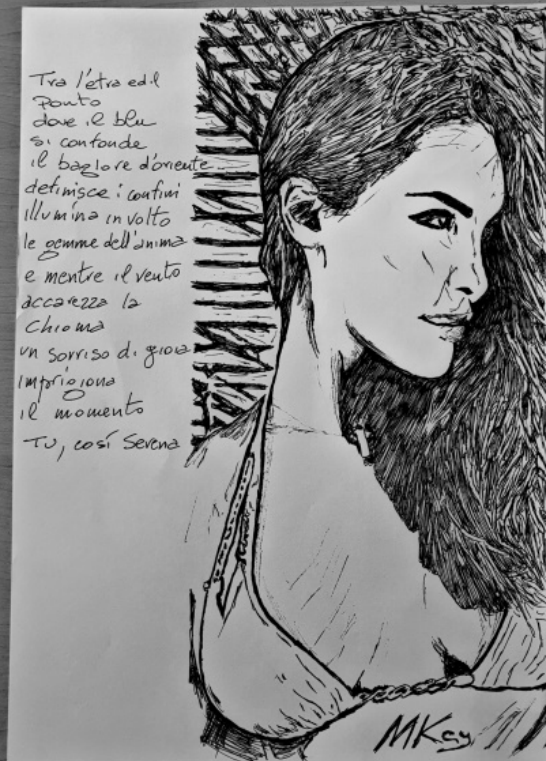 Tra l'etra ed il
Ponto
dove il blu
si confonde
il bagliore d'oriente
definisce i confini
illumina in volto
le gemme dell'anima
e mentre il vento
accarezza la
chioma
un sorriso di gioia
imprigiona
il momento
Tu, così Serena
MKay